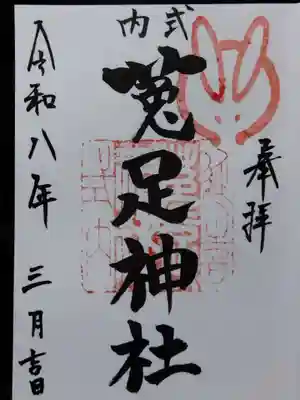 奉拝
式内
菟足神社
令和八年 三月吉日